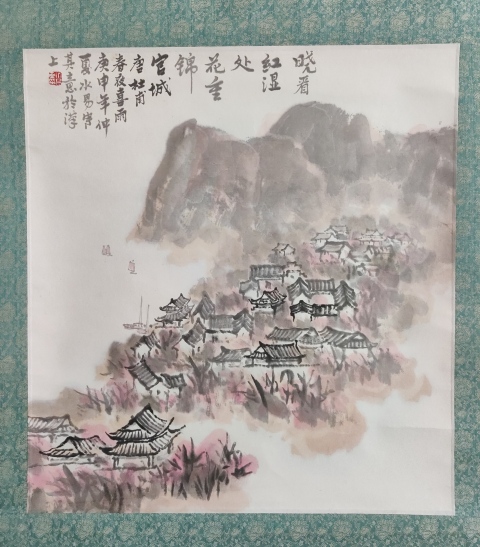 晓看
红湿
处
花重
锦
官城
唐杜甫
春夜喜雨
庚申年仲
夏水易岸
其主恩於潭
上